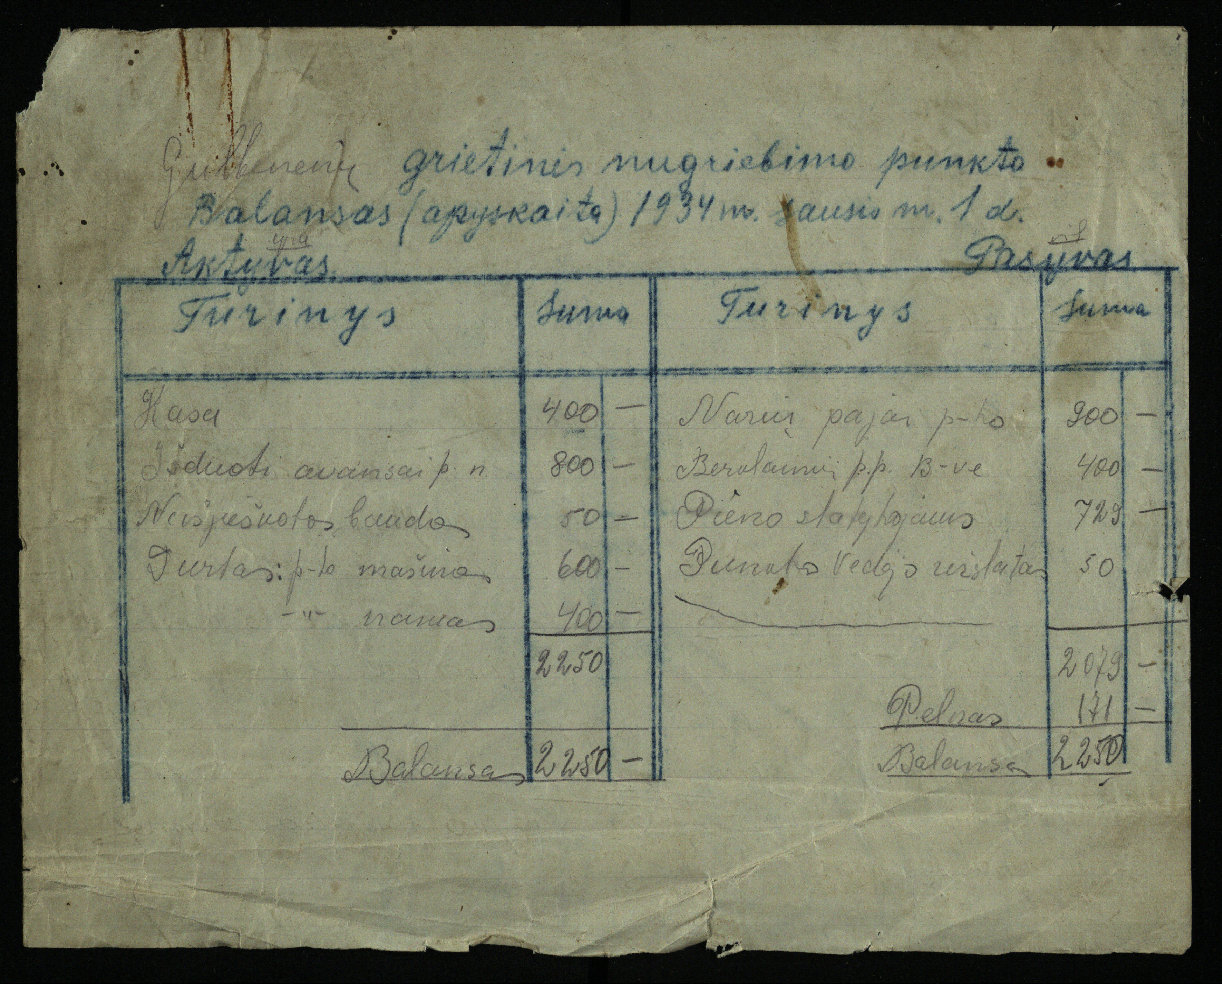 grietinės nugriebimo punkto
Balansas (apyskaita) 1934 m. sausio m. 1 d.
yra
Aktyvas Pasyvas
Turinys Suma Turinys Suma
Kasa 400 — Narių pajai p-to 900 —
Išduoti avansai p. n. 800 — Berolainių p.p. B-vė 400 —
Neišieškotos baudos 50 — Pieno statytojams 729 —
Turtas: p-to mašinos 600 — Punkto Vedėjo užstatas 50
— " — namas 400 —
2250 2079 —
Pelnas 171 —
Balansas 2250 — Balansas 2250